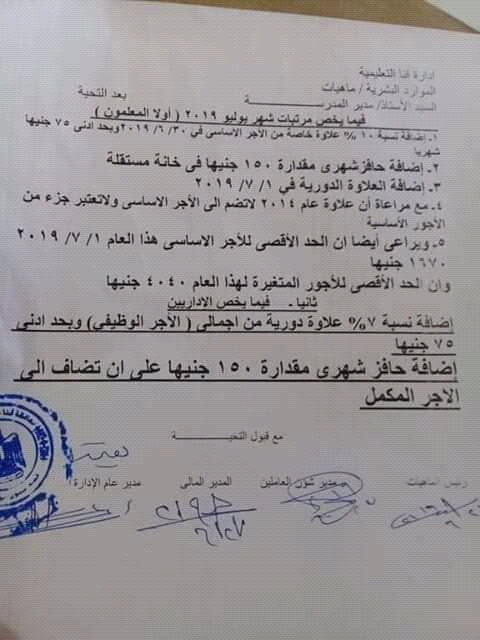 ادارة قنا التعليمية
الموارد البشرية / ماهيات
السيد الأستاذ/ مدير المدرســــــــــــة بعد التحية
فيما يخص مرتبات شهر يوليو ٢٠١٩ ( أولا المعلمون )
١ـ إضافة نسبة ١٠ % علاوة خاصة من الأجر الاساسى في ٣٠/ ٦ /٢٠١٩ وبحد ادنى ٧٥ جنيها
شهريا
٢ـ إضافة حافز شهرى مقدارة ١٥٠ جنيها فى خانة مستقلة
٣ـ إضافة العلاوة الدورية في ١ /٧ /٢٠١٩
٤ـ مع مراعاة أن علاوة عام ٢٠١٤ لاتضم الى الأجر الاساسى ولاتعتبر جزء من
الأجور الأساسية
٥ـ ويراعى أيضا ان الحد الأقصى للأجر الاساسى هذا العام ١ /٧ /٢٠١٩
١٦٧٠ جنيها
وان الحد الأقصى للأجور المتغيرة لهذا العام ٤٠٤٠ جنيها
ثانيا ـ فيما يخص الاداريين
إضافة نسبة ٧% علاوة دورية من اجمالى ( الأجر الوظيفى) وبحد ادنى
٧٥ جنيها
إضافة حافز شهرى مقدارة ١٥٠ جنيها على ان تضاف الى
الاجر المكمل
مع قبول التحيــــــــــــة
رئيس الماهيات مدير شئون العاملين المدير المالى مدير عام الإدارة